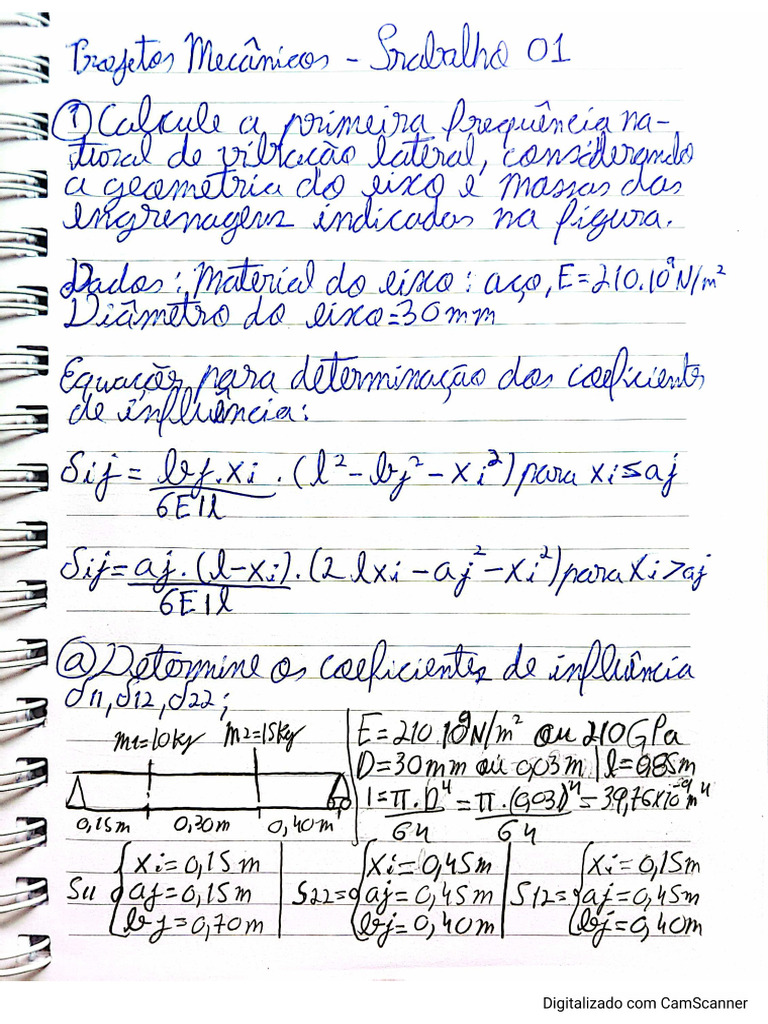 Projetos Mecânicos - Trabalho 01
① Calcule a primeira frequência na-
tural de vibração lateral, considerando
a geometria do eixo e massas das
engrenagens indicadas na figura.
Dados: Material do eixo: aço, E=210.10⁹N/m²
Diâmetro do eixo=30mm
Equações para determinação dos coeficientes
de influência:
δij = bj.xi/6EIl . (l²-bj²-xi²) para xi≤aj
δij = aj.(l-xi)/6EIl . (2lxi-aj²-xi²) para xi>aj
ⓐ Determine os coeficientes de influência
δ11, δ12, δ22;
m1=10kg m2=15kg
0,15m 0,30m 0,40m
E=210.10⁹N/m² ou 210GPa
D=30mm ou 0,03m | l=0,85m
I=π.D⁴/64=π.(0,03)⁴/64=39,76x10⁻⁹m⁴
S11 { xi=0,15m
aj=0,15m
bj=0,70m
S22= { xi=0,45m
aj=0,45m
bj=0,40m
S12= { xi=0,15m
aj=0,45m
bj=0,40m
Digitalizado com CamScanner